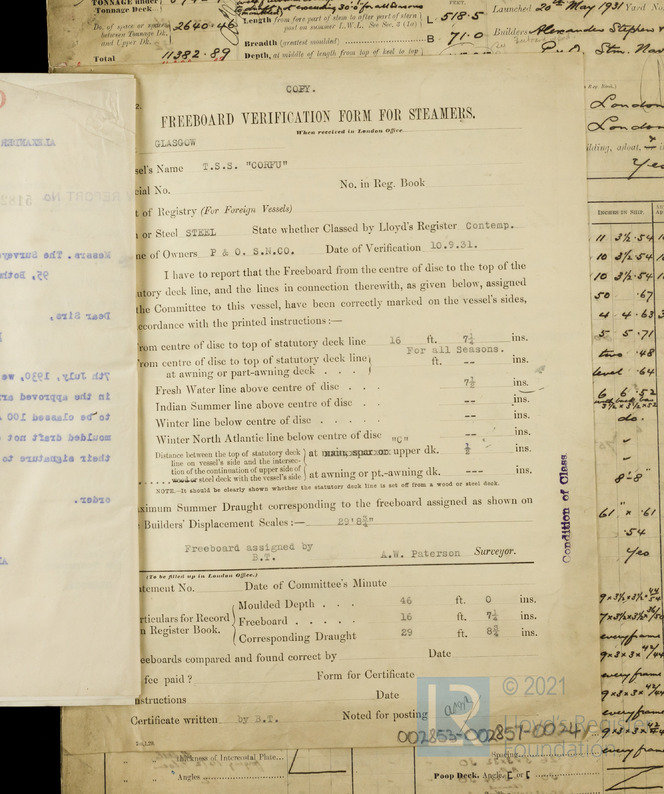 TONNAGE under
Tonnage Deck
Do. of space or spaces
between Tonnage Dk.
and Upper Dk.
2640.46
Total 11382.89
Length from fore part of stem to after part of stern
post on summer L.W.L. See Sec. 3 (1a)
L 518.5
Breadth (greatest moulded) B 71.0
Depth, at middle of length from top of keel to top
Launched 20th May 1931 Yard No.
Builders Alexander Stephen &
P. & O. Stm. Nav.
COPY.
FREEBOARD VERIFICATION FORM FOR STEAMERS.
When received in London Office
GLASGOW
sel's Name T.S.S. "CORFU"
cial No. No. in Reg. Book
t of Registry (For Foreign Vessels)
n or Steel STEEL State whether Classed by Lloyd's Register Contemp.
ne of Owners P & O. S.N.CO. Date of Verification 10.9.31.
I have to report that the Freeboard from the centre of disc to the top of the
utory deck line, and the lines in connection therewith, as given below, assigned
the Committee to this vessel, have been correctly marked on the vessel's sides,
ccordance with the printed instructions:—
rom centre of disc to top of statutory deck line 16 ft. 7¼ ins.
For all Seasons.
rom centre of disc to top of statutory deck line
at awning or part-awning deck . . . ft. -- ins.
Fresh Water line above centre of disc . . . 7½ ins.
Indian Summer line above centre of disc . -- ins.
Winter line below centre of disc . . . . . -- ins.
Winter North Atlantic line below centre of disc "C" -- ins.
Distance between the top of statutory deck
line on vessel's side and the intersec-
tion of the continuation of upper side of
wood or steel deck with the vessel's side
at main, spar or upper dk. ins.
at awning or pt.-awning dk. --- ins.
NOTE.—It should be clearly shown whether the statutory deck line is set off from a wood or steel deck.
ximum Summer Draught corresponding to the freeboard assigned as shown on
Builders' Displacement Scales:— 29'8¾"
Freeboard assigned by
B.T. A.W. Paterson Surveyor.
(To be filled up in London Office.)
tement No. Date of Committee's Minute
rticulars for Record
n Register Book.
Moulded Depth . . . 46 ft. 0 ins.
Freeboard . . . . . 16 ft. 7¼ ins.
Corresponding Draught 29 ft. 8¾ ins.
eeboards compared and found correct by Date
fee paid ? Form for Certificate
nstructions Date
Certificate written by B.T. Noted for posting
002853-002857-00247
© 2021
Lloyd's Register
Foundation
LR
Condition of Class
thickness of Intercostal Plate...
Angles
Spacing
Poop Deck, Angles
London
London
lding, afloat,
Yes
INCHES IN SHIP.
11 3½ .54
10 3½ .54
10 3½ .54
50 .67
4 4.63
5 5.71
two .48
level .64
6 6 .52
do.
8'-8"
61" × .61
.54
Yes
every frame
every frame
every frame
every frame
Messrs. The Surveyo
95, Both
Dear Sirs,
7th July, 1930, we
in the approved ar
to be classed 100
moulded draft not
their signature to
order.